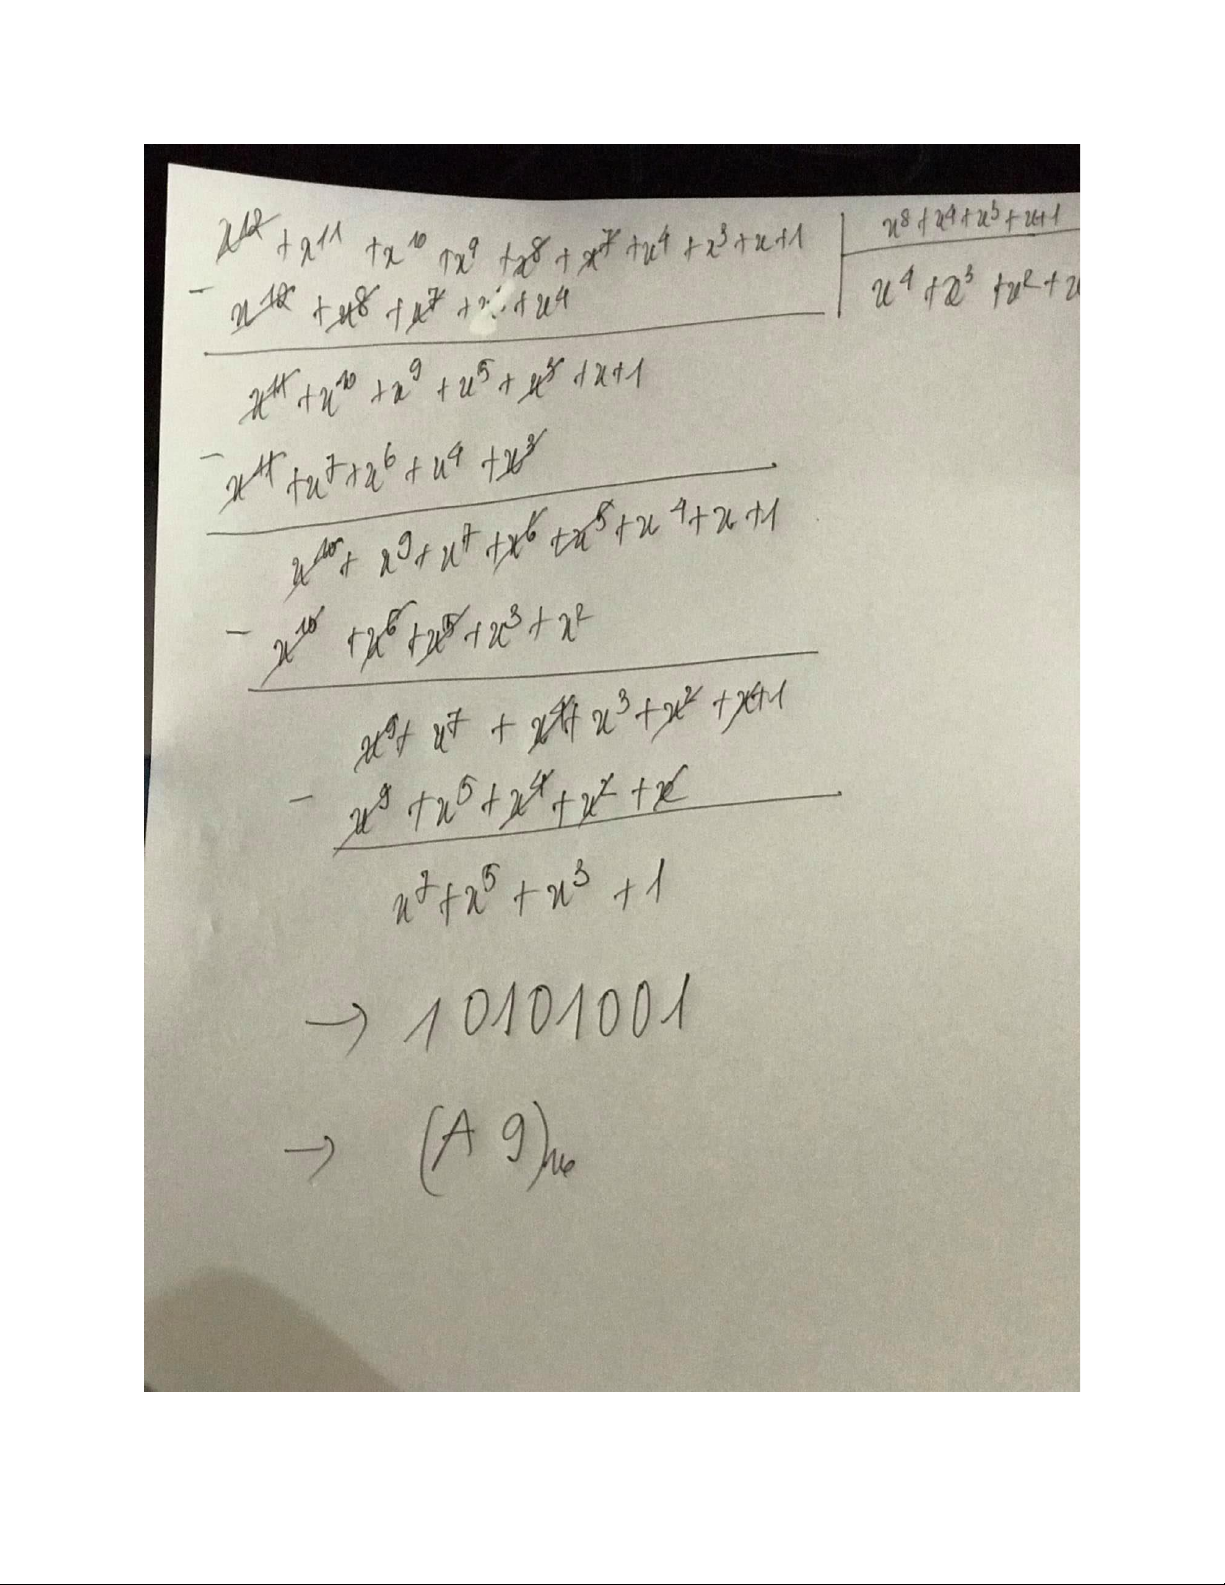 x¹² + x¹¹ + x¹⁰ + x⁹ + x⁸ + x⁷ + x⁴ + x³ + x + 1
x⁸ + x⁴ + x³ + x + 1
- x¹² + x⁸ + x⁷ + + x⁴
x⁴ + x³ + x² + x
x¹¹ + x¹⁰ + x⁹ + x⁵ + x³ + x + 1
- x¹¹ + x⁷ + x⁶ + x⁴ + x³
x¹⁰ + x⁹ + x⁷ + x⁶ + x⁵ + x⁴ + x + 1
- x¹⁰ + x⁶ + x⁵ + x³ + x²
x⁹ + x⁷ + x⁴ + x³ + x² + x + 1
- x⁹ + x⁵ + x⁴ + x² + x
x⁷ + x⁵ + x³ + 1
→ 10101001
→ (A 9)₁₆